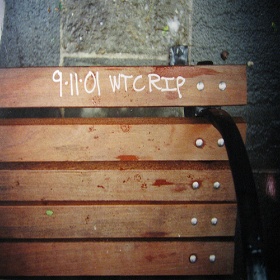 9·11·01 WTC RIP